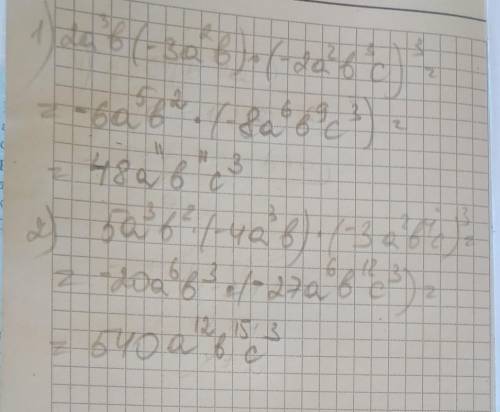 1) 2a³b(-3a²b)·(-2a²b³c)³=
= -6a⁵b²·(-8a⁶b⁹c³)=
= 48a¹¹b¹¹c³
2) 5a³b²·(-4a³b)·(-3a²b⁴c)³=
= -20a⁶b³·(-27a⁶b¹²c³)=
= 540a¹²b¹⁵c³